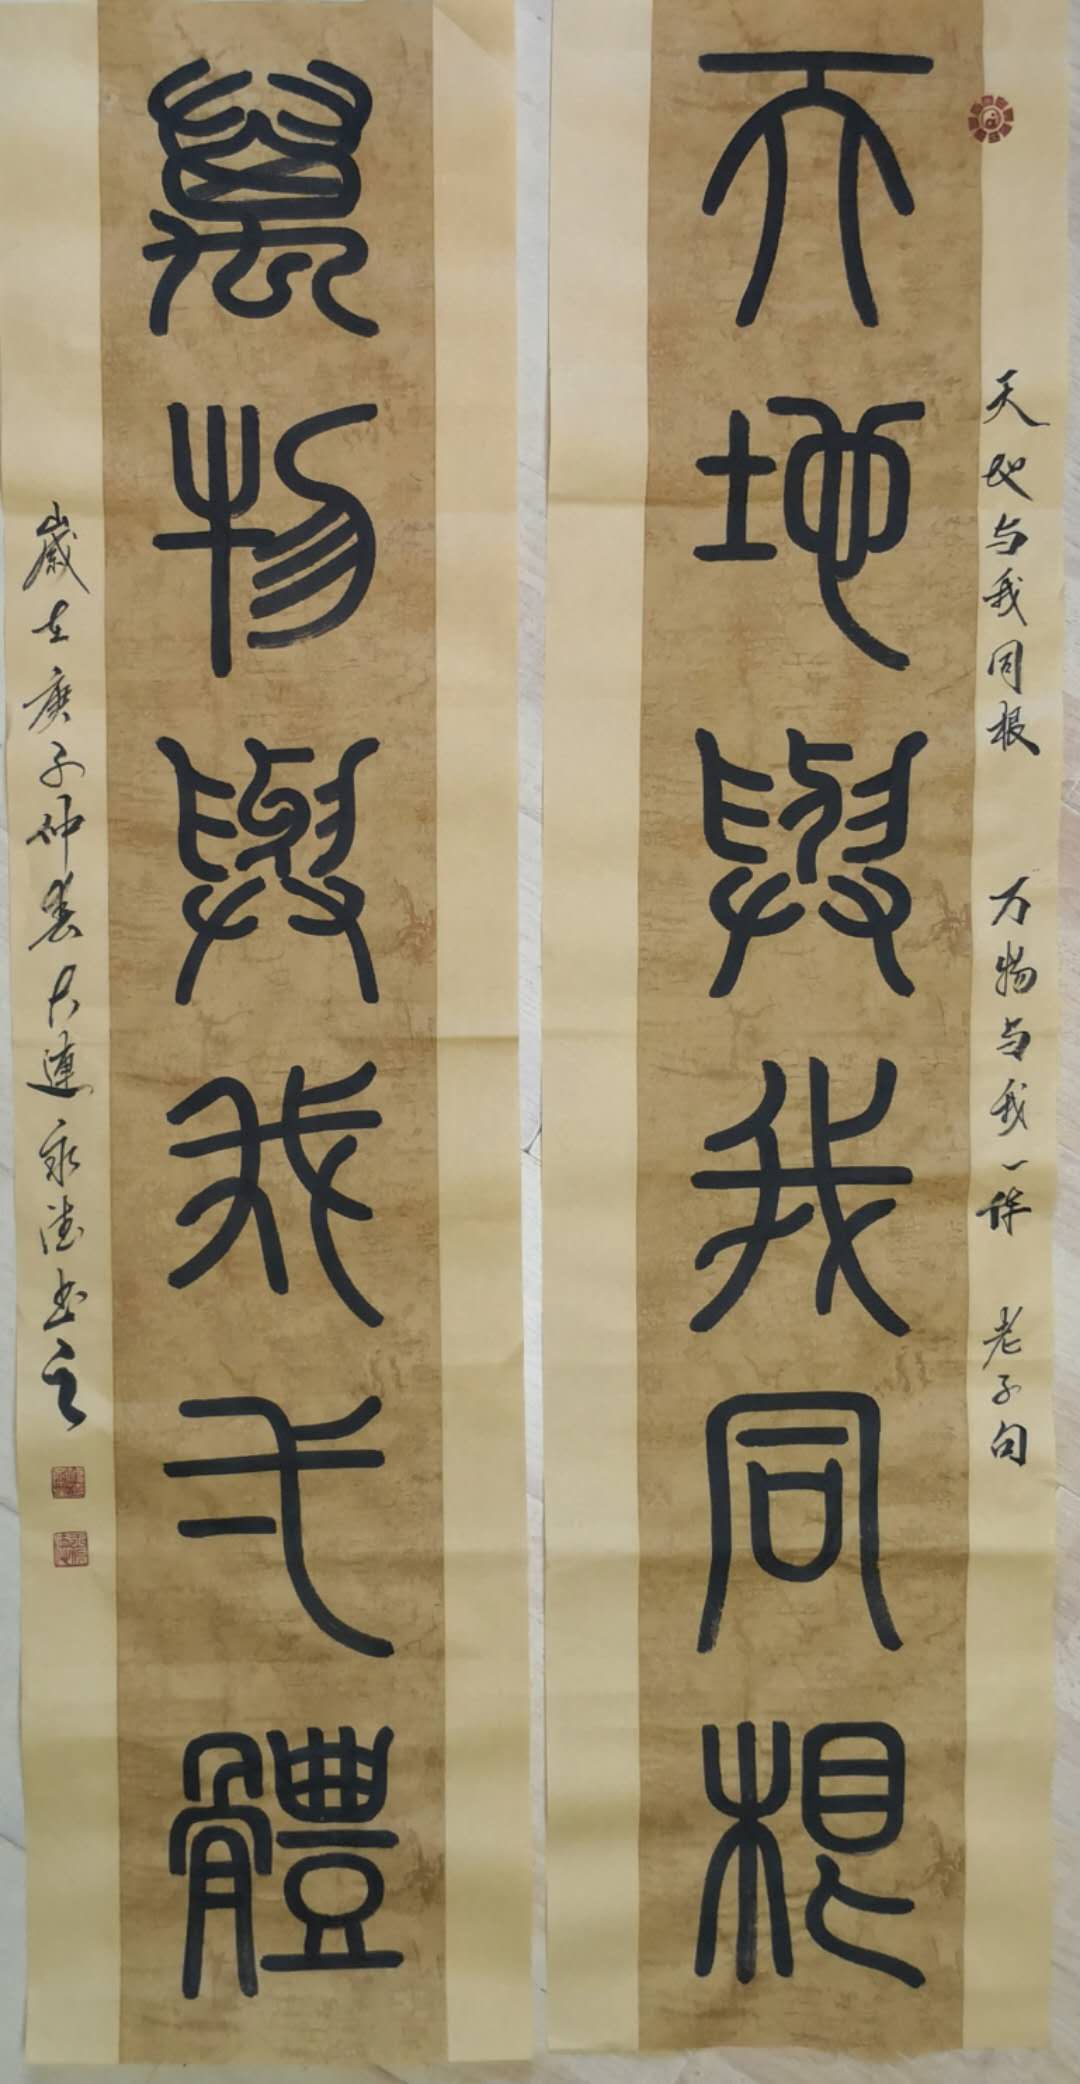 天地與我同根
天地与我同根 万物与我一体 老子句
萬物與我弌體
歲在庚子仲春大連永德书之